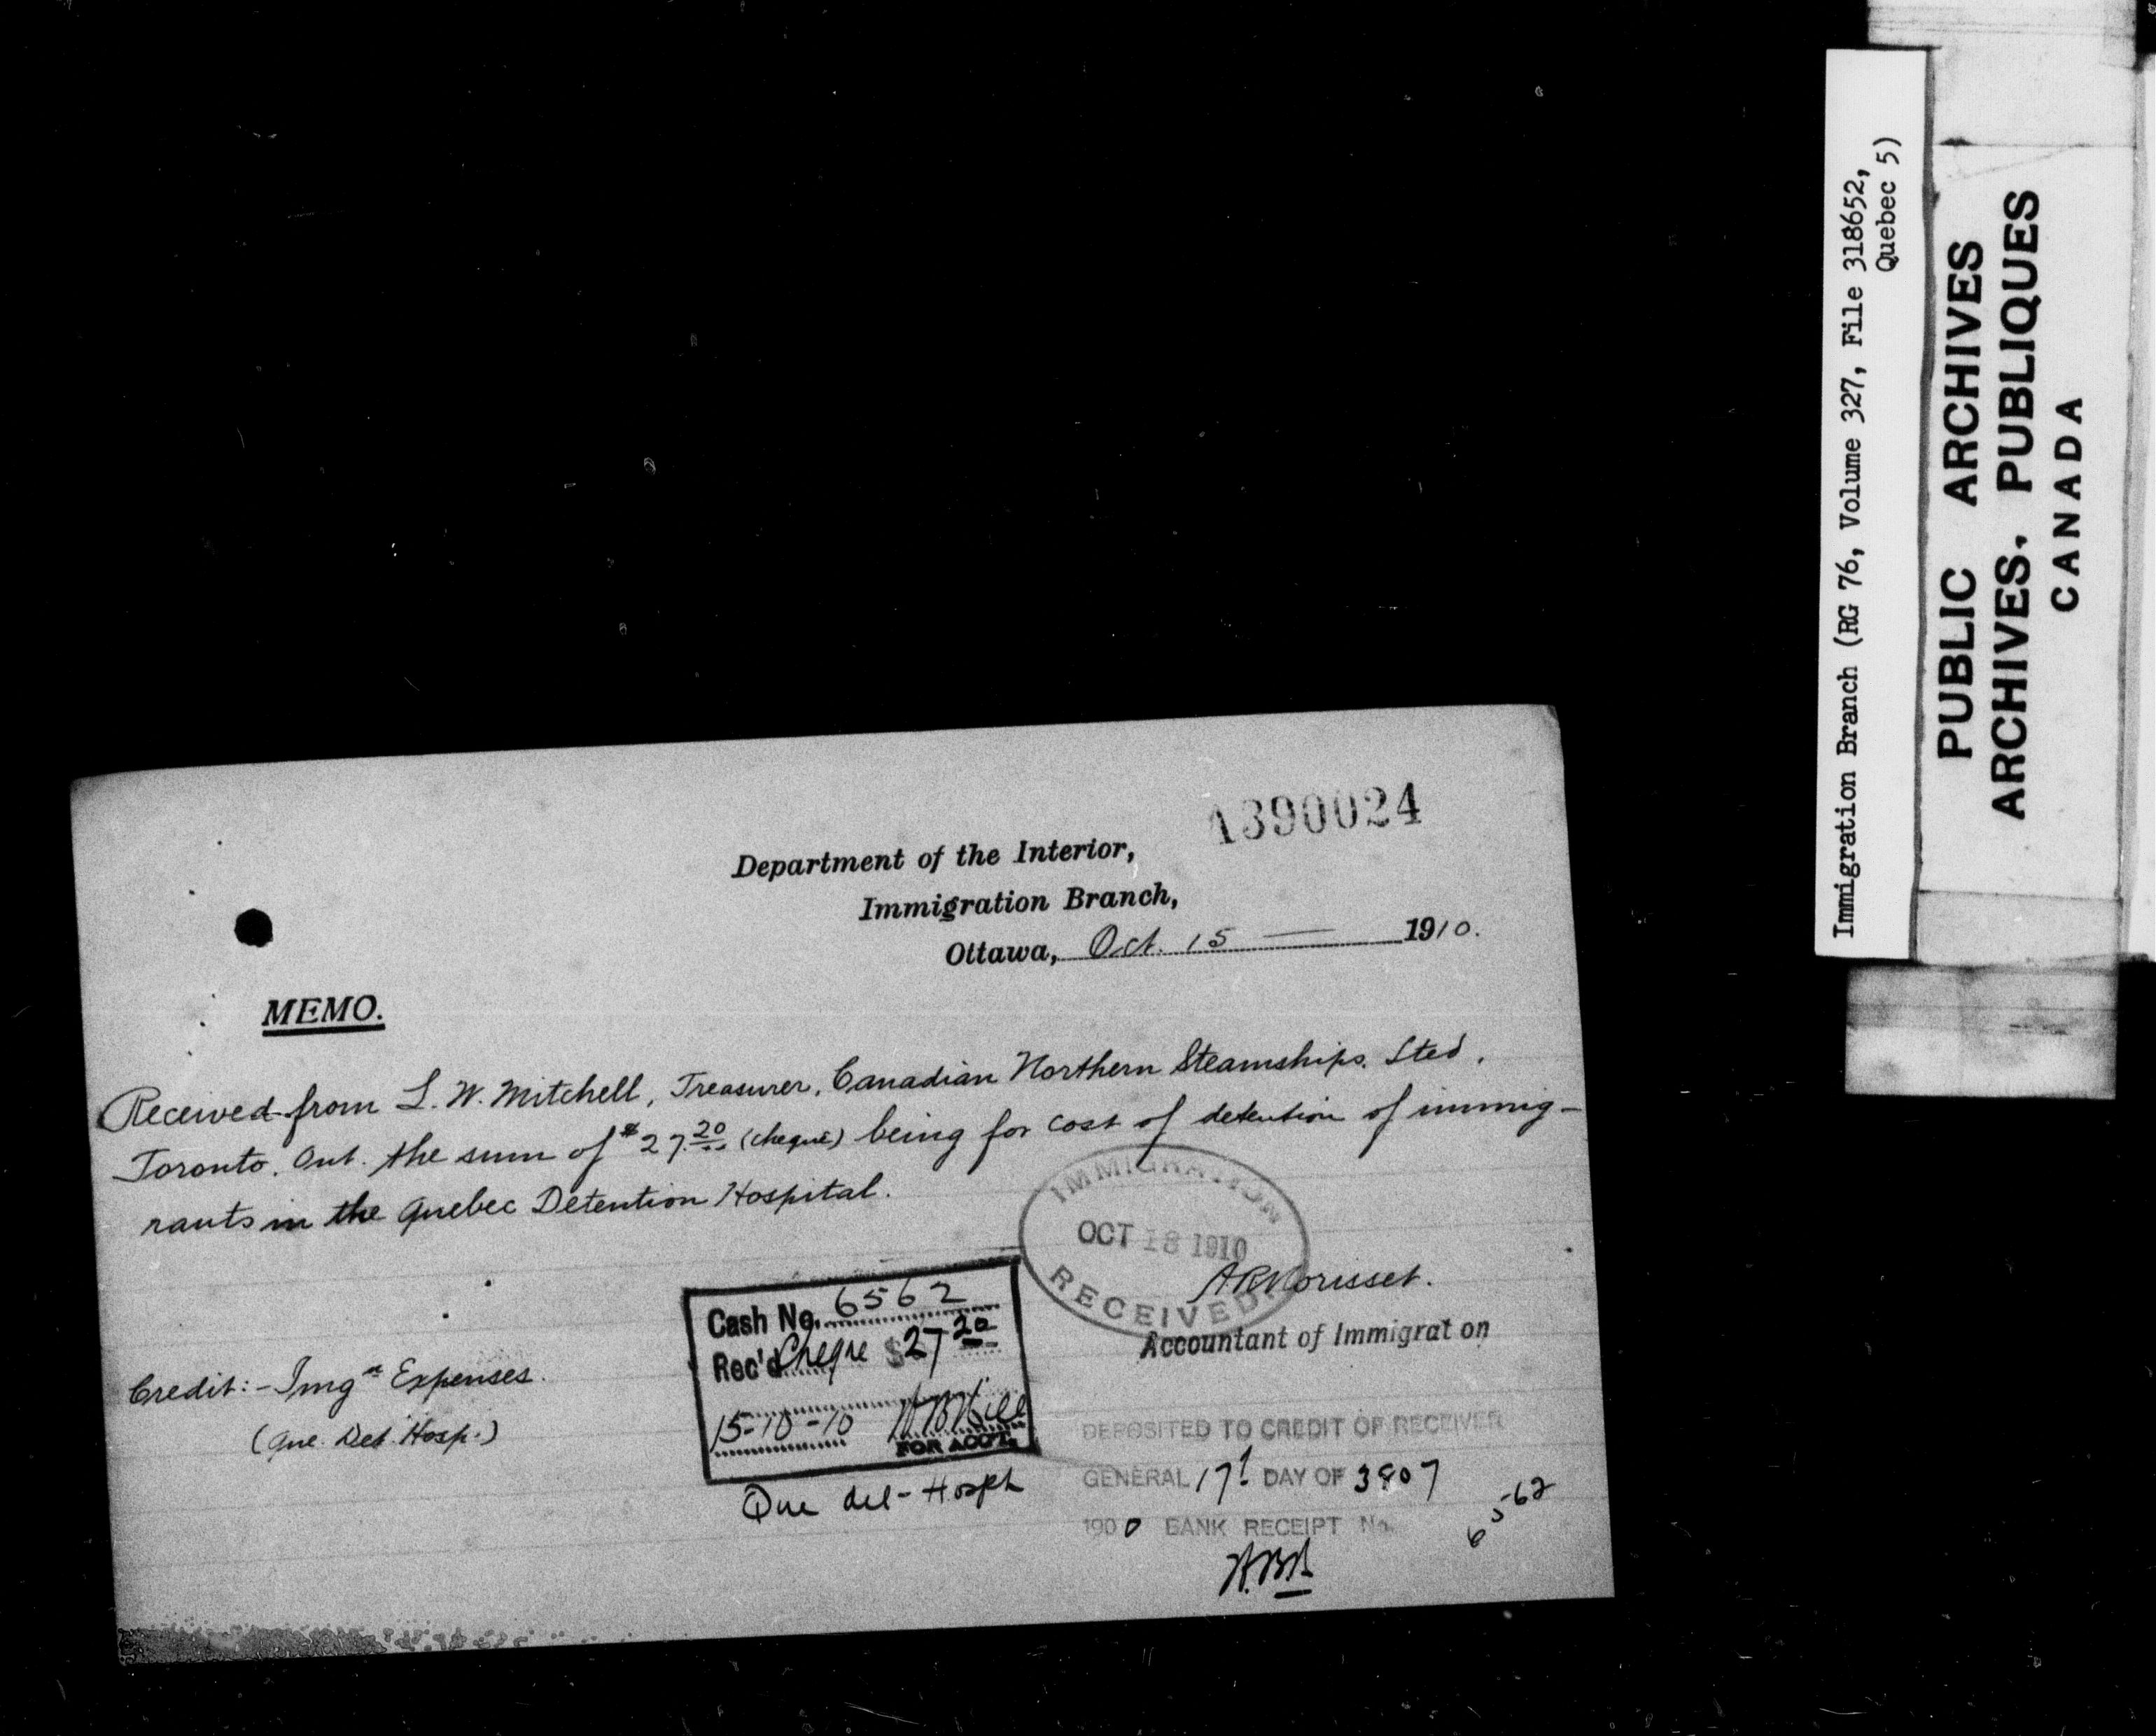 1390024
Department of the Interior,
Immigration Branch,
Ottawa, Oct. 15 — 1910.
MEMO.
Received from L. W. Mitchell, Treasurer, Canadian Northern Steamships. Lted.
Toronto. Ont. the sum of $27.20 (cheque) being for cost of detention of immig-
rants in the Quebec Detention Hospital.
IMMIGRATION
OCT 18 1910
RECEIVED.
A R Morisset.
Accountant of Immigrat on
Cash No. 6562
Rec'd Cheque $27 20
15-10-10
FOR ACCT.
Que det - Hosptl
Credit:- Imgn Expenses.
(Que. Det. Hosp.)
DEPOSITED TO CREDIT OF RECEIVER
GENERAL 17t DAY OF 3807
1900 BANK RECEIPT No.
6562
Immigration Branch (RG 76, Volume 327, File 318652,
Quebec 5)
PUBLIC ARCHIVES
ARCHIVES. PUBLIQUES
CANADA